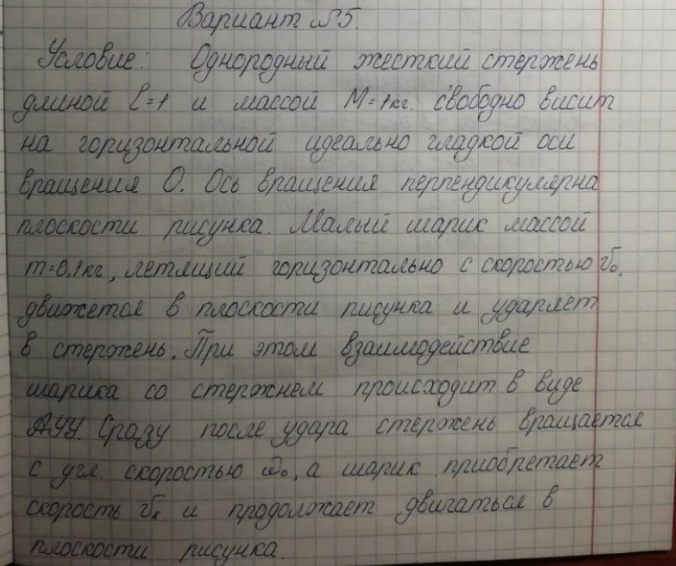 Вариант №5.
Условие: Однородный жесткий стержень
длиной l=1 и массой M=1кг. свободно висит
на горизонтальной идеально гладкой оси
вращения О. Ось вращения перпендикулярна
плоскости рисунка. Малый шарик массой
m=0,1кг, летящий горизонтально с скоростью v₀,
движется в плоскости рисунка и ударяет
в стержень. При этом взаимодействие
шарика со стержнем происходит в виде
АУУ. Сразу после удара стержень вращается
с угл. скоростью ω₀, а шарик приобретает
скорость vₖ и продолжает двигаться в
плоскости рисунка.